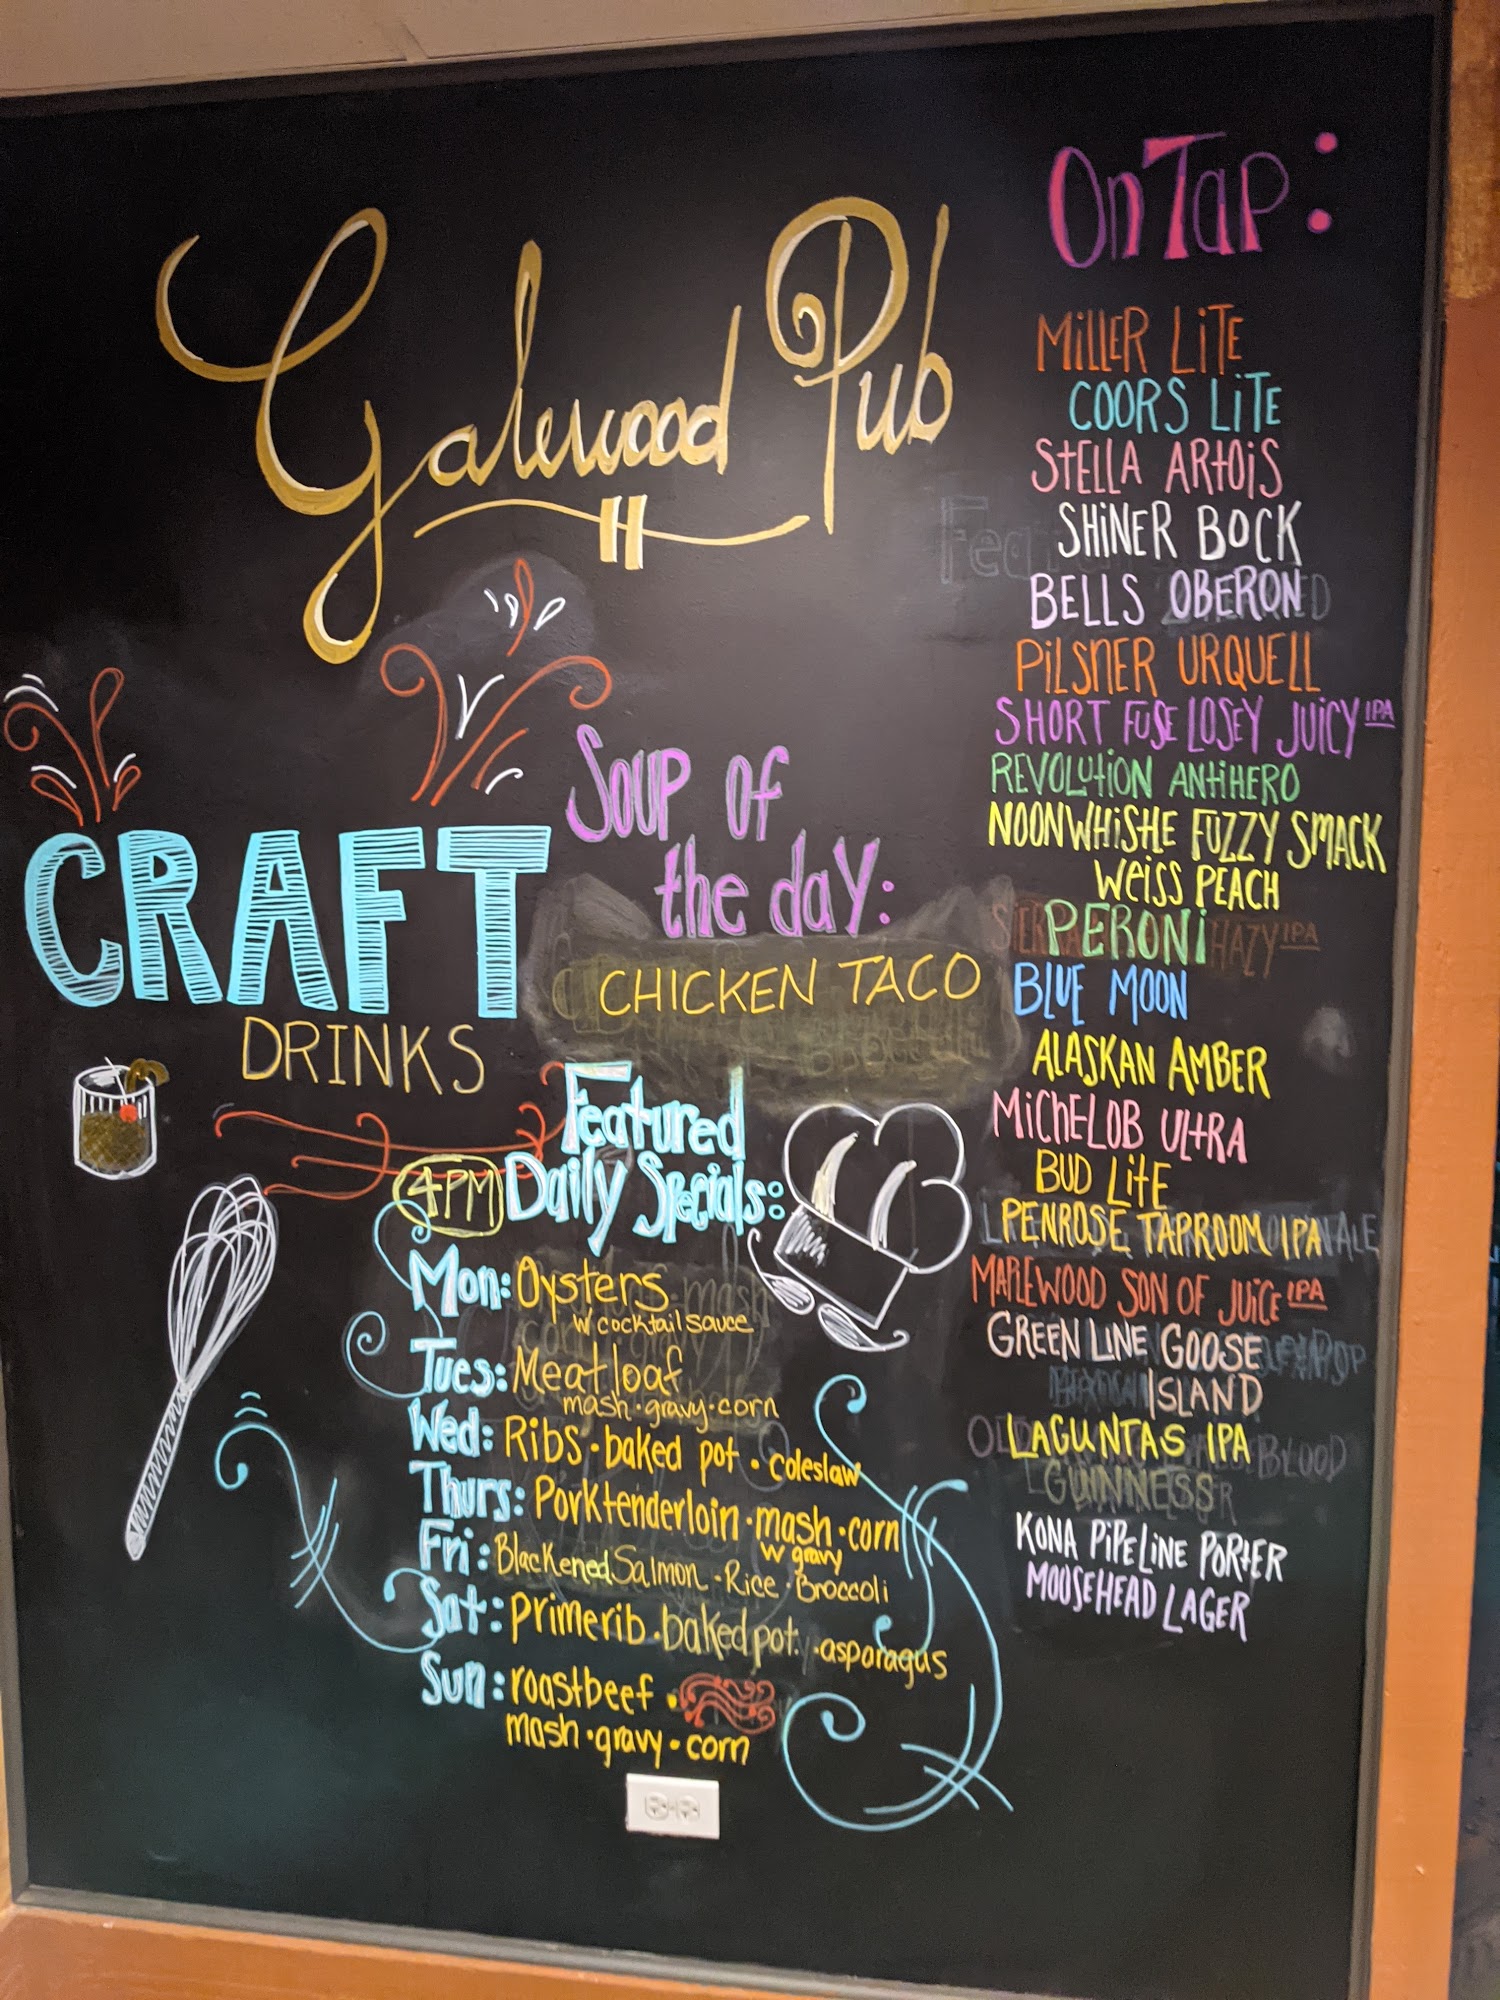 Galewood Pub
II
CRAFT
DRINKS
Soup of
the day:
CHICKEN TACO
Featured
4PM Daily Specials:
Mon: Oysters
W cocktail sauce
Tues: Meatloaf
mash · gravy · corn
Wed: Ribs · baked pot · coleslaw
Thurs: Pork tenderloin · mash · corn
W gravy
Fri: Blackened Salmon · Rice · Broccoli
Sat: prime rib · baked pot · asparagus
Sun: roastbeef ·
mash · gravy · corn
On Tap:
MILLER LITE
COORS LITE
STELLA ARTOIS
SHINER BOCK
BELLS OBERON
PILSNER URQUELL
SHORT FUSE LOSEY JUICY IPA
REVOLUTION ANTIHERO
NOON WHISTLE FUZZY SMACK
WEISS PEACH
PERONI
BLUE MOON
ALASKAN AMBER
MICHELOB ULTRA
BUD LITE
PENROSE TAPROOM IPA
MAPLEWOOD SON OF JUICE IPA
GREEN LINE GOOSE
ISLAND
LAGUNTAS IPA
GUINNESS
KONA PIPELINE PORTER
MOOSEHEAD LAGER